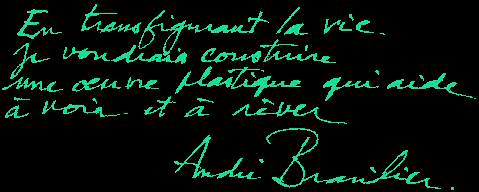 En transfigurant la vie.
je voudrais construire
une œuvre plastique qui aide
à voir et à rêver
André Brasilier.